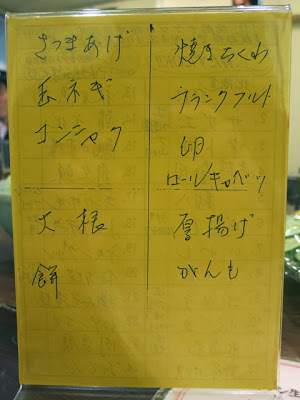 さつまあげ
玉ネギ
コンニャク
大根
餅
焼きちくわ
フランクフルト
卵
ロールキャベツ
厚揚げ
がんも